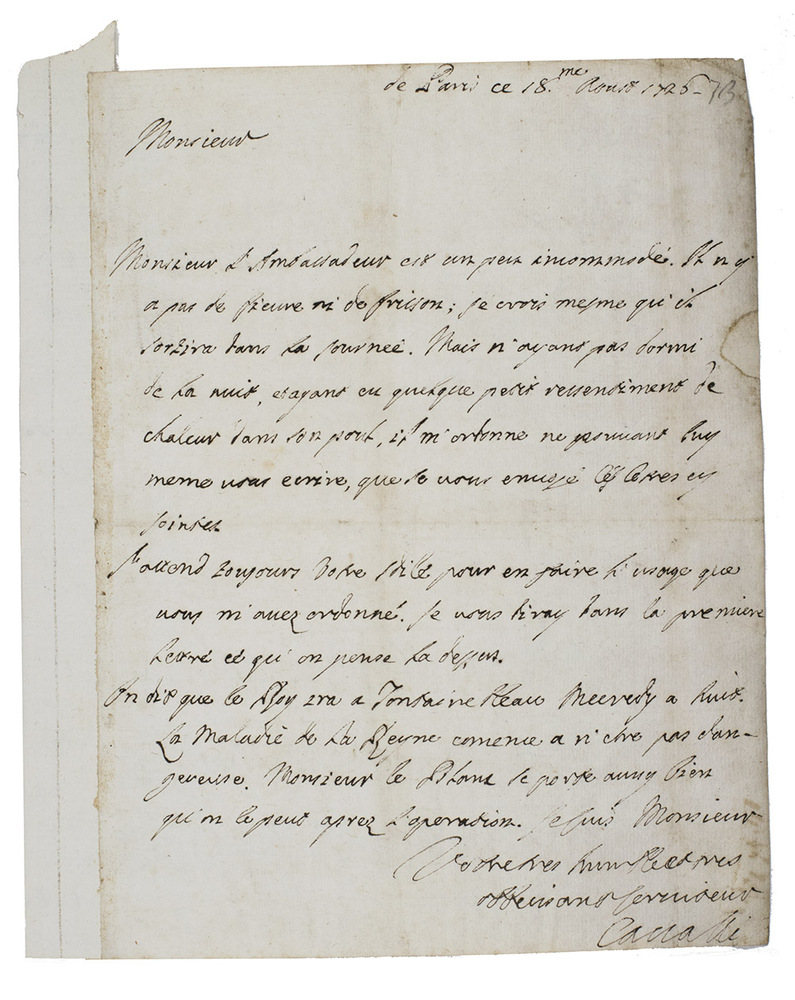 de Paris ce 18.me Aoust 1726 - 73
Monsieur
Monsieur L'Ambassadeur est un peu incommodé. Il n'y
a pas de fieure ni de frisson; je crois mesme qu'il
sortira dans la journeé. Mais n'ayant pas dormi
de la nuit, et ayant eu quelque petit ressentiment de
chaleur dans son pout, il m'ordonne ne pouuant luy
meme vous ecrire, que je vous enuoje les lettres cy
jointes
J'attend toujours votre pour en faire l'usage que
vous m'auez ordonné. Je vous diray dans la premiere
lettre ce qu'on pense la dessus.
On dit que le Roy ira a Fontainebleau Mecredy a huit.
La Maladie de La Reyne comence a n'etre pas dan-
gereuse. Monsieur le Blanc se porte aussy bien
qu'on le peut aprez l'operation. Je suis Monsieur
Votre tres humble et tres
obbeissant seruiteur